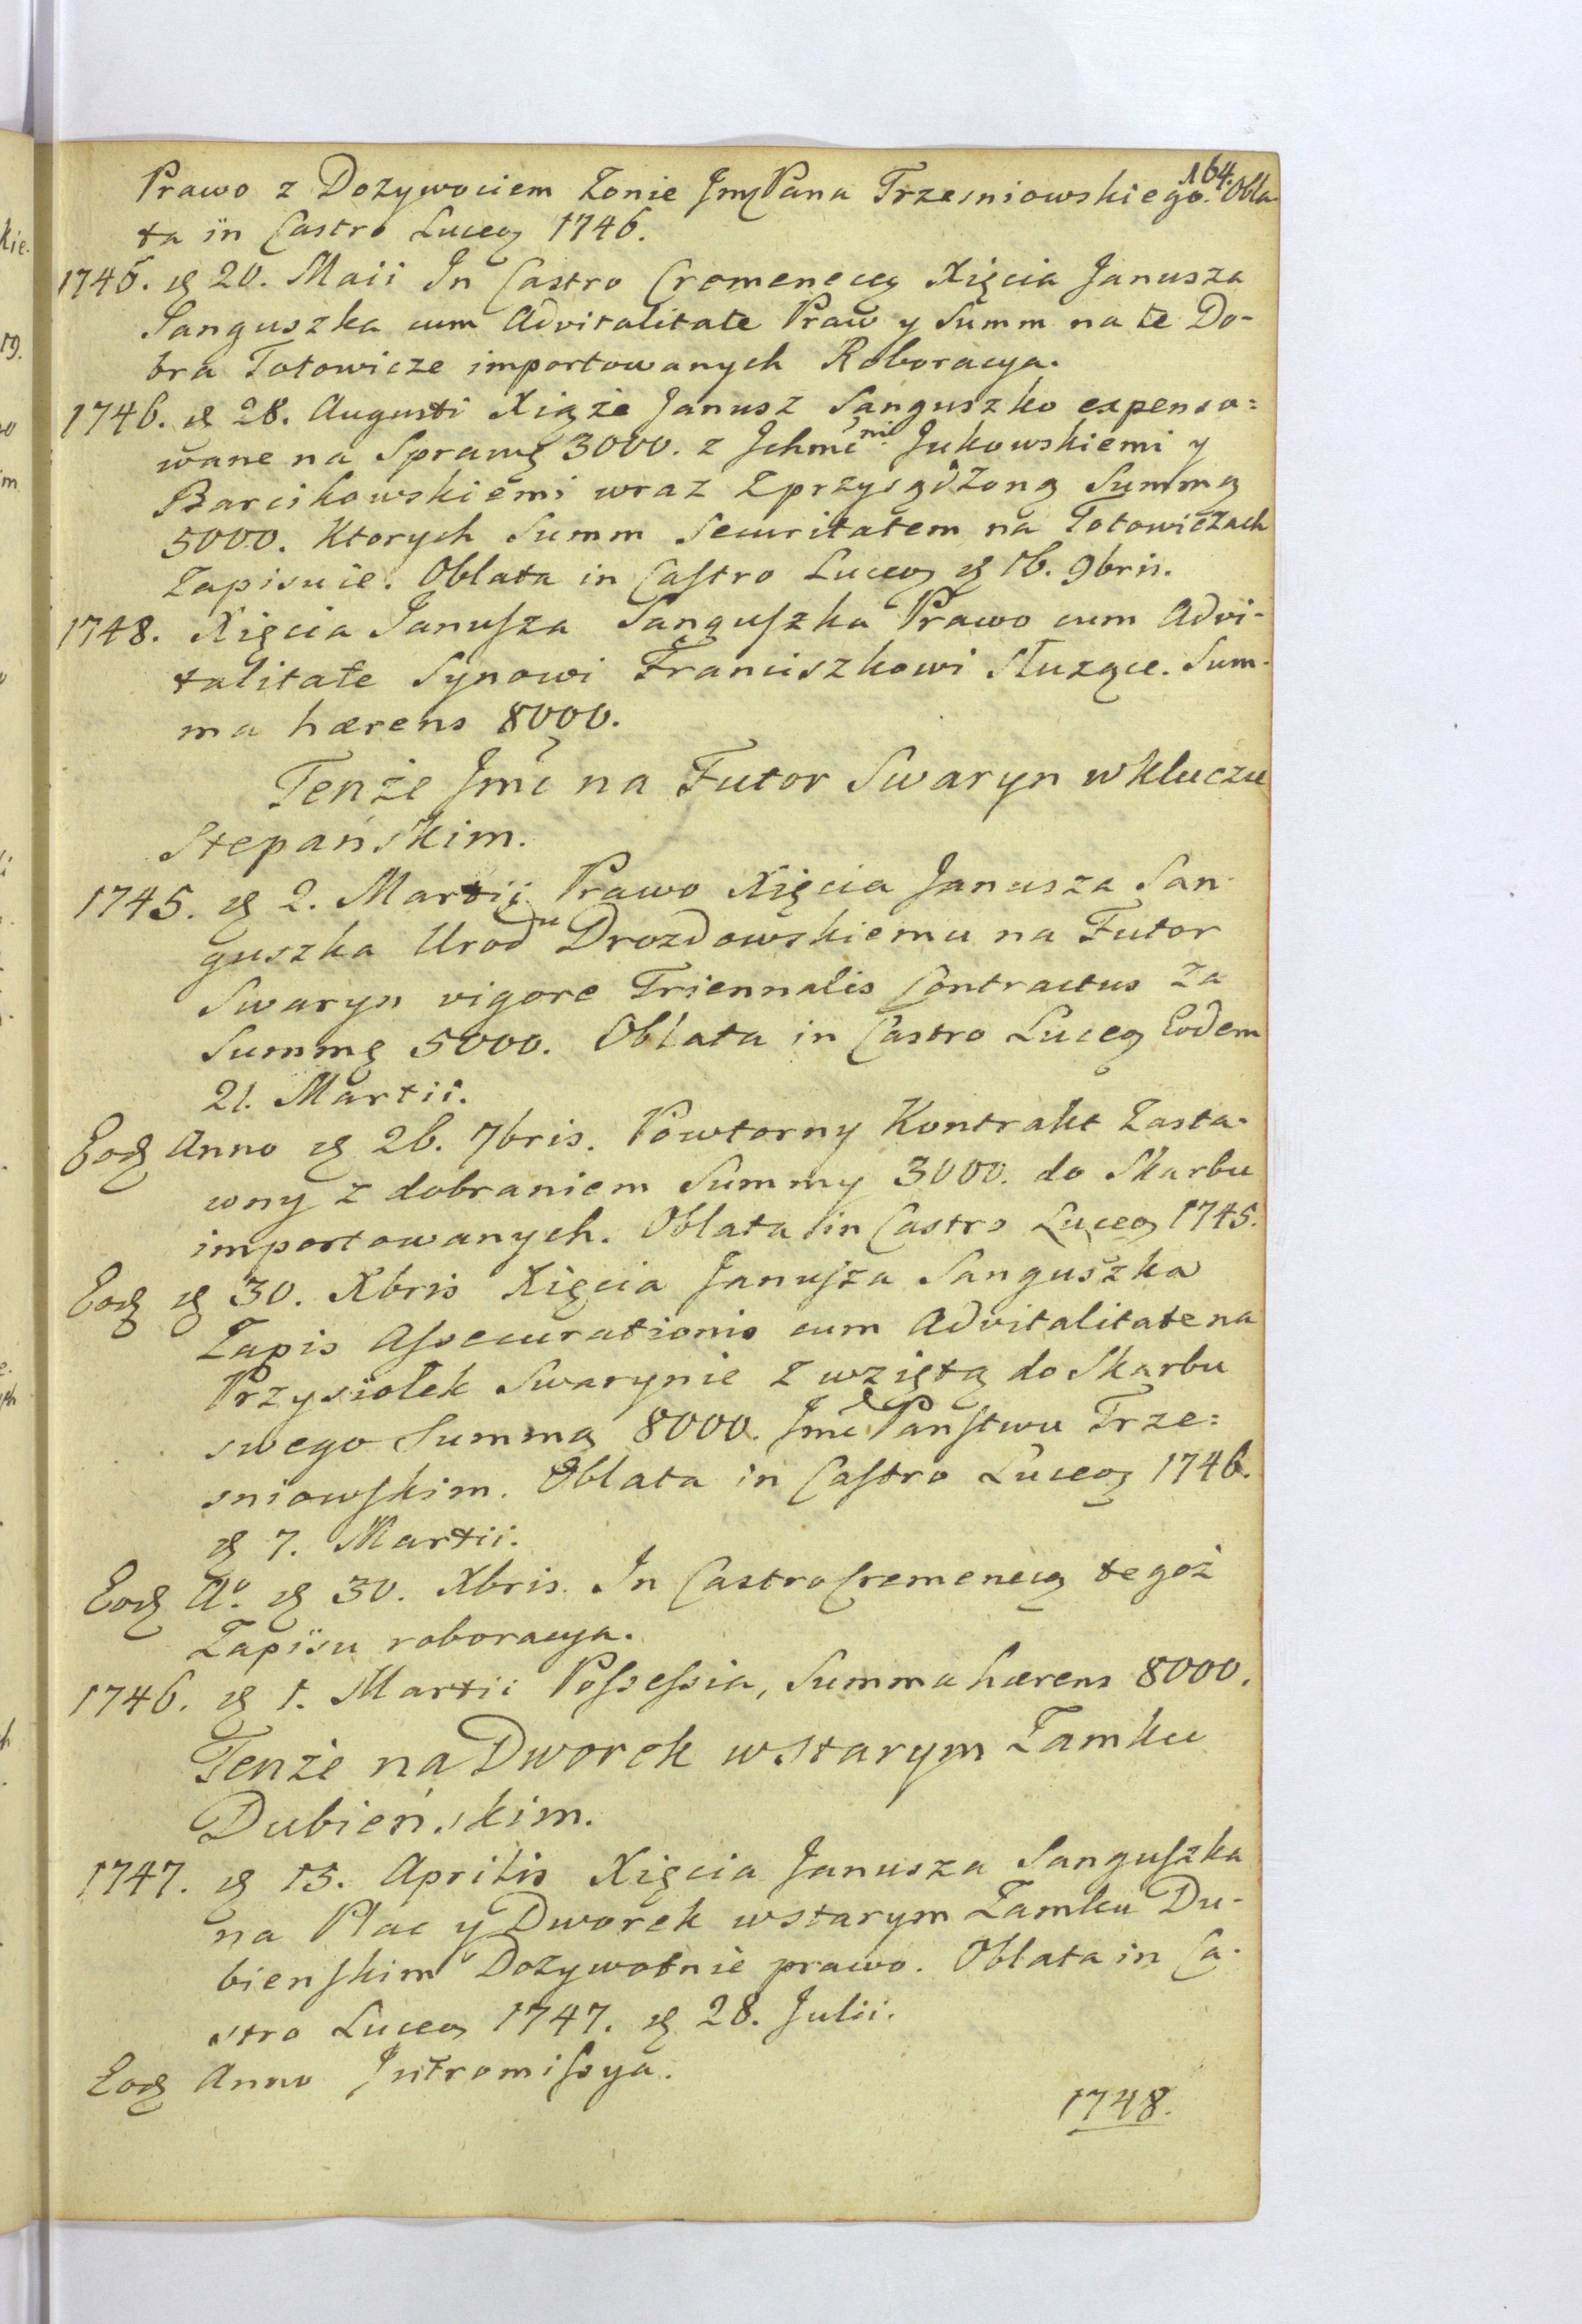 164.
Prawo z Dozywociem Zonie Jmp Pana Trzesniowskiego. Obla-
ta in Castro Luceo 1746.
1746. d 20. Maii In Castro Cremeneceg Xięcia Janusza
Sanguszka cum Advitalitate Praw y Summ na te Do-
bra Totowicze importowanych Roboracya.
1746. d 28. Augusti Xiąże Janusz Sanguszko expenso=
wane na Sprawę 3000. z Jchmć ni Jukowskiemi y
Barcikowskiemi wraz z przysądzoną Summą
5000. Ktorych Summ Securitatem na Totowiczach
Zapisuie. Oblata in Castro Luceo d 16. 9bris.
1748. Xięcia Janusza Sanguszka Prawo cum Advi-
talitate Synowi Franciszkowi Służące. Sum-
ma hærens 8000.
Tenże Jmć na Futor Swaryn w Kluczu
Stepańskim.
1745. d 2. Martii Prawo Xięcia Janusza San-
guszka Urod u Drozdowskiemu na Futor
Swaryn vigore Triennalis Contractus za
Summę 5000. Oblata in Castro Luceo Eodem
21. Martii.
Eod Anno d 26. 7bris. Powtorny Kontrakt Zasta-
wny z dobraniem Summy 3000. do Skarbu
importowanych. Oblata in Castro Luceo 1745.
Eod d 30. Xbris Xięcia Janusza Sanguszka
Zapis Assecurationis cum Advitalitate na
Przysiołek Swarynie z wziętą do Skarbu
swego Summą 8000. Jmć Państwu Trze=
sniowskim. Oblata in Castro Luceo 1746.
d 7. Martii.
Eod Ao. d 30. Xbris. In Castro Cremeneceg tegoż
Zapisu roboracya.
1746. d 1. Martii Possessia, Summa hærens 8000.
Tenże na Dworek w Starym Zamku
Dubieńskim.
1747. d 15. Aprilis Xięcia Janusza Sanguszka
na Plac y Dworek w starym Zamku Du-
bienskim Dozywotnie prawo. Oblata in Ca-
stro Luceo 1747. d 28. Julii.
Eod Anno Jntromissya.
1748.